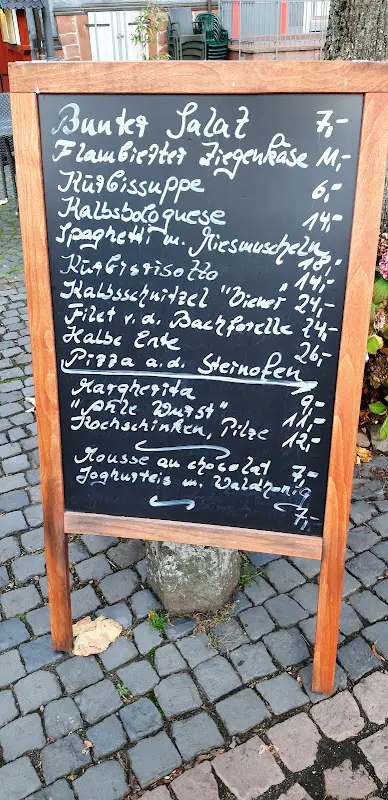 Bunter Salat 7,-
Flambierter Ziegenkäse 11,-
Kürbissuppe 6,-
Kalbsbolognese 14,-
Spaghetti m. Miesmuscheln 18,-
Kürbisrisotto 14,-
Kalbsschnitzel "Wiener" 24,-
Filet v. d. Bachforelle 24,-
Halbe Ente 26,-
Pizza a. d. Steinofen
Margherita 9,-
"Ahle Wurst" 11,-
Kochschinken, Pilze 12,-
Mousse au chocolat 7,-
Joghurteis m. Waldhonig 7,-